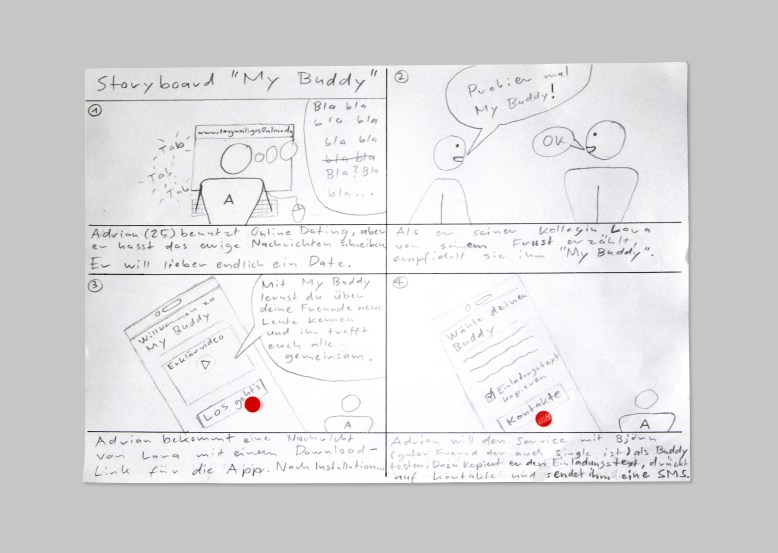 Storyboard "My Buddy"
1
www.langweiligesOnline.de
Tab
Tab
Tab
A
Bla bla
bla bla
bla bla
bla bla
Bla? Bla
bla...
Adrian (25) benutzt Online Dating, aber
er hasst das ewige Nachrichten schreiben
Er will lieber endlich ein Date.
2
Probier mal
My Buddy!
OK
Als er seiner Kollegin Lara
von seinem Frust erzählt,
empfiehlt sie ihm "My Buddy".
3
Willkommen zu
My Buddy
Erklärvideo
Los geht's
Mit My Buddy
lernst du über
deine Freunde neue
Leute kennen
und ihr trefft
euch alle
gemeinsam.
A
Adrian bekommt eine Nachricht
von Lara mit einem Download-
Link für die App. Nach Installation...
4
Wähle deinen
Buddy
Einladungstext
kopieren
Kontakte
A
Adrian will den Service mit Björn
(guter Freund der auch single ist) als Buddy
testen. Dazu kopiert er den Einladungstext, drückt
auf Kontakte' und sendet ihm eine SMS.